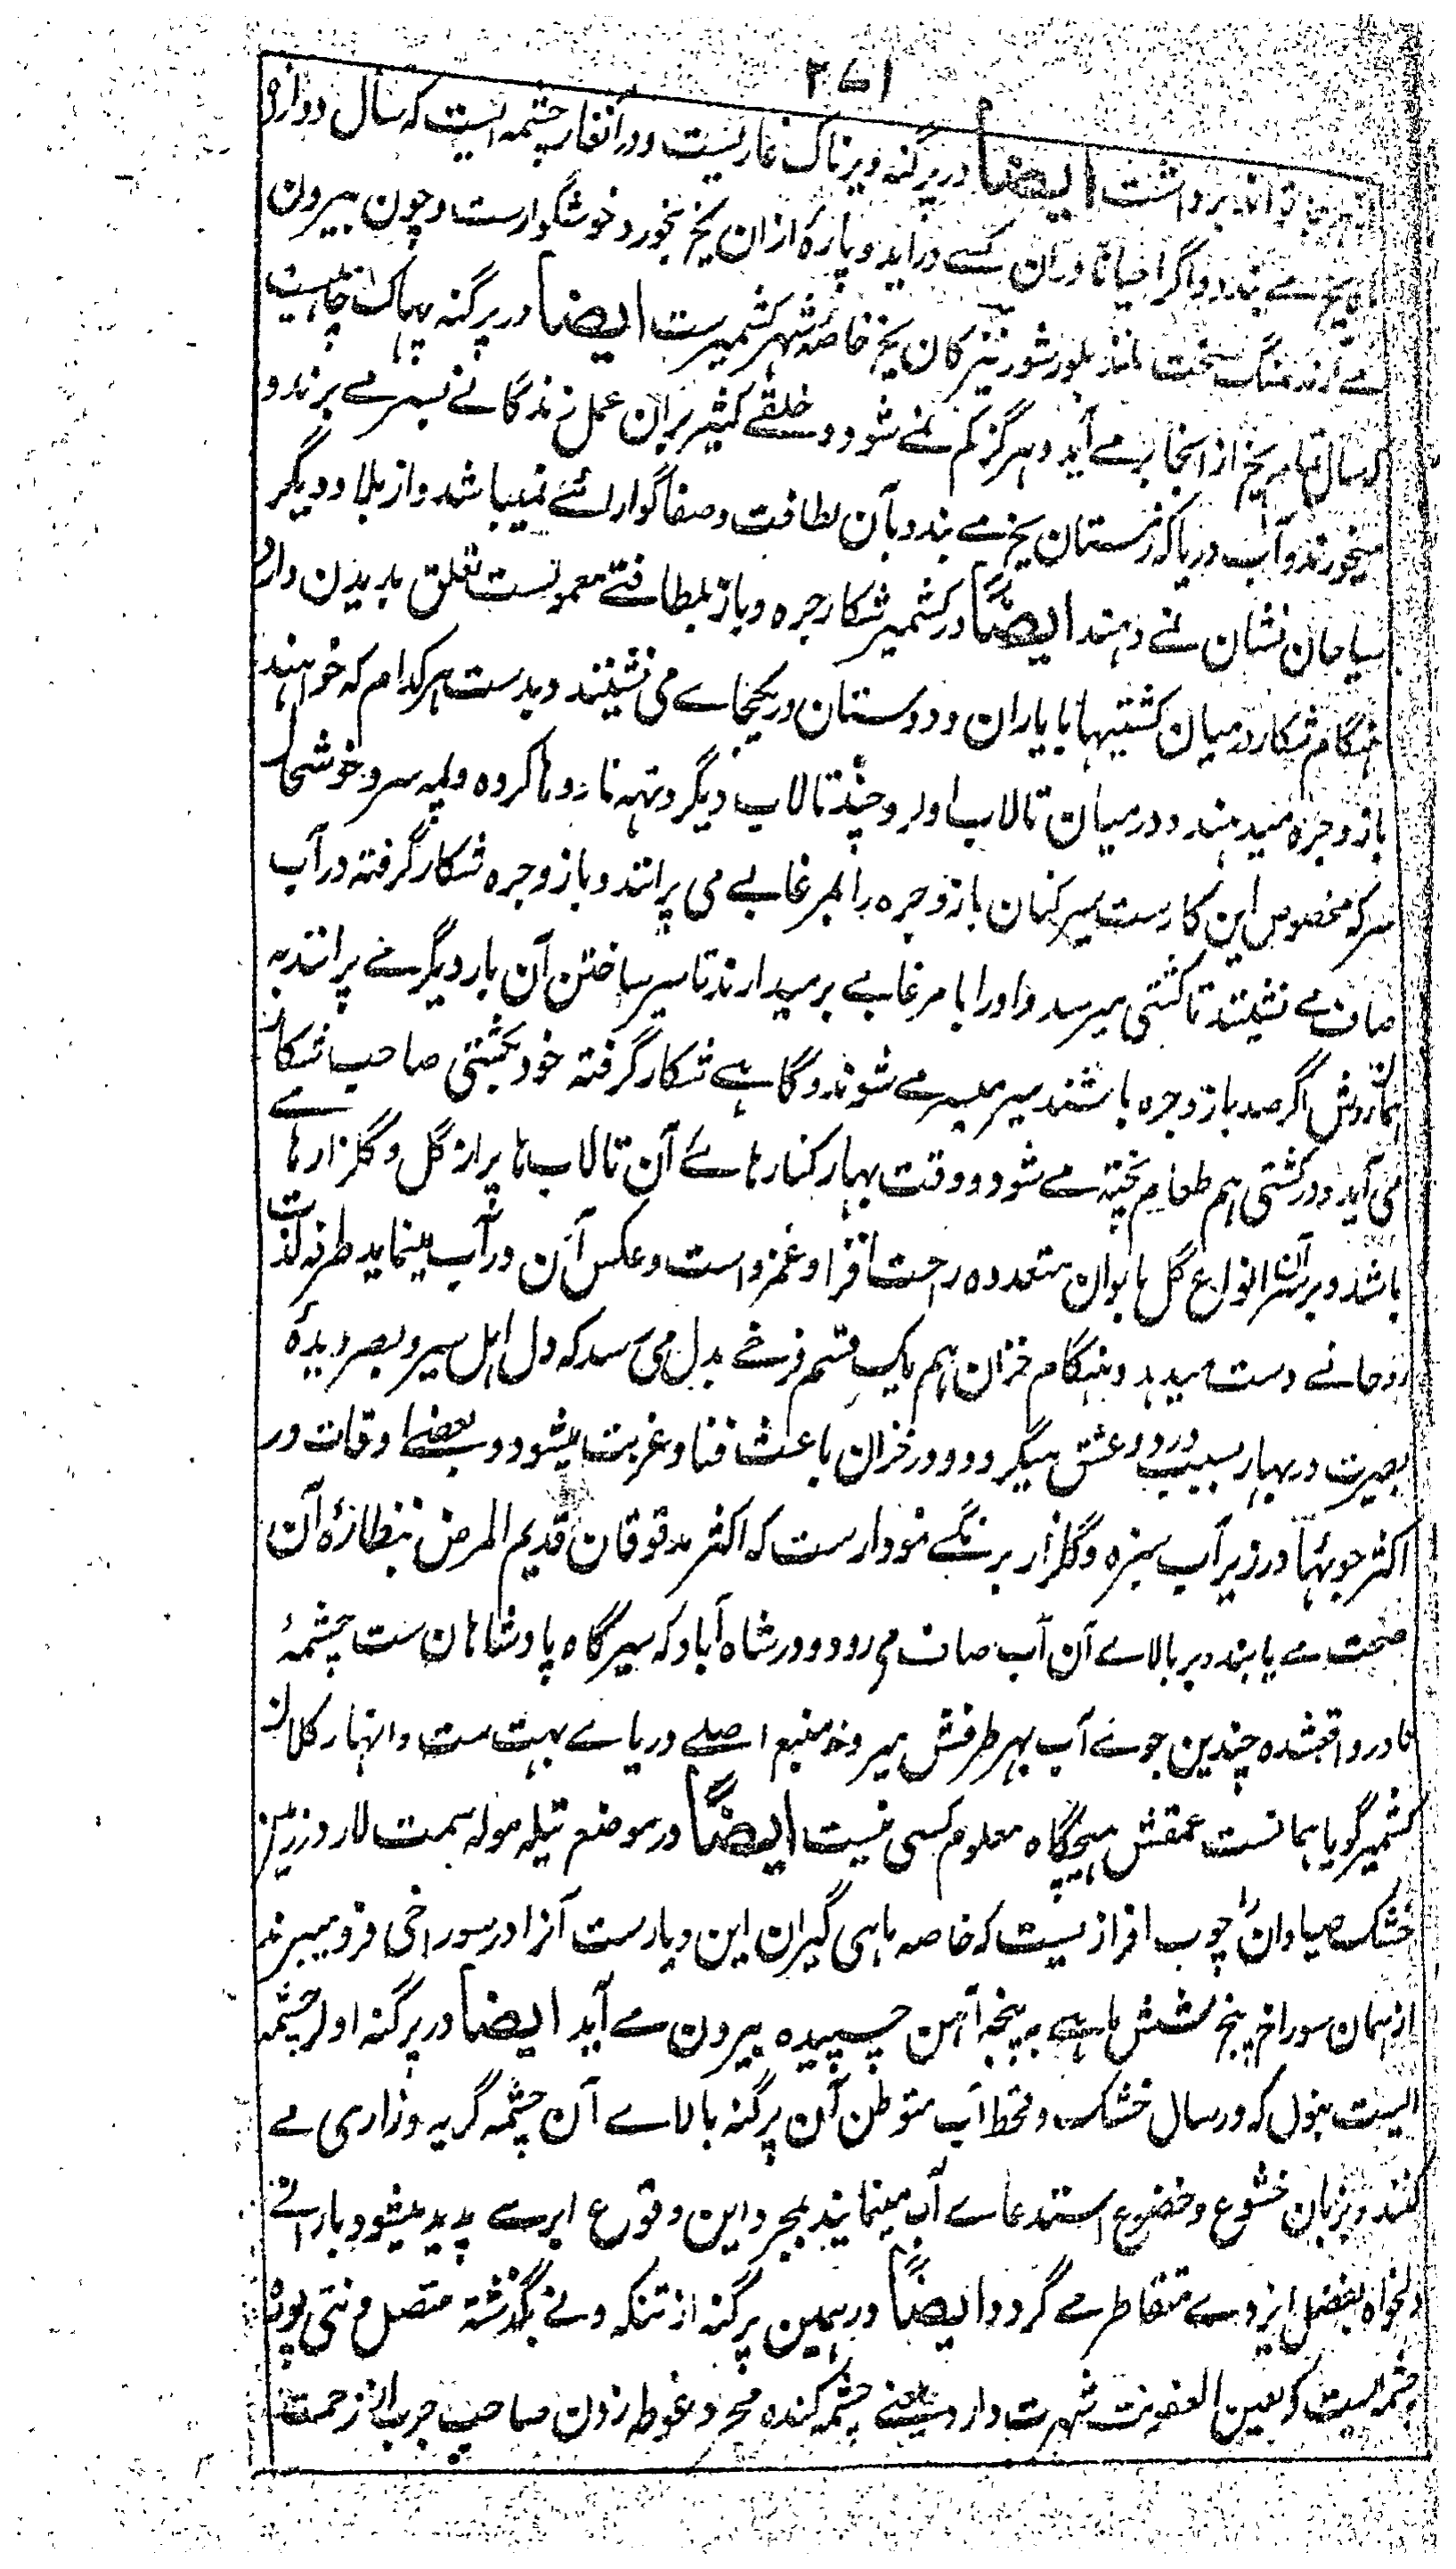 ۲۷۱
تواند برداشت ایضاً در پرگنه ویرناگ غاریست و در آنغار چشمه ایست که سال دوازده
ماه یخ مے بندد و اگر احیانا در آن کسے درآید و پارۀ از ان یخ بخورد خوشگوارست و چون بیرون
مے آرند سنگ سخت مانند بلور شور نیز کان یخ خاصۀ شهر کشمیرست ایضاً در پرگنه پهاک چاهیست
که سال تمام یخ از انجا بر مے آید و هرگز کم نمے شود و خلقے کثیر بران عمل زندگانے بسر مے برند و
میخورند و آب دریا که زمستان یخ مے بندد بآن لطافت و صفا گوارائے نمیباشد و از بلاد دیگر
سیاحان نشان نمے دهند ایضاً در کشمیر شکار جره و باز بلطافتے معمولست تعلق بدیدن دارد
هنگام شکار در میان کشتیها با یاران و دوستان در یکجاے می نشینند و بدست هر کدام که خواهند
باز و جره میدهند و در میان تالاب اولر و چند تالاب دیگر و تهه نا رو ها کروه و لمه سر و خوشحال
سر که مخصوص این کارست سیر کنان باز و جره را بمرغابے می پرانند و باز و جره شکار گرفته در آب
صاف مے نشینند تا کشتی میرسد و او را با مرغابے بر میدارند تا سیر ساختن آن بار دیگر نمے پرانند به
همان روش اگر صد باز و جره باشند سیر میسر مے شوند و گاہے شکار گرفته خود بکشتی صاحب شکار
می آید و در کشتی هم طعام پخته مے شود و وقت بهار کنارهاے آن تالاب ها پر از گل و گلزارها مے
باشد و بر آن انواع گل بالوان متعدده راحت افزا و غمزداست و عکس آن در آب مینماید طرفه لذت
روحانے دست میدهد و هنگام خزان هم یک قسم فرحے بدل می رسد که دل اهل سیر و بصر و دیدۀ
بصیرت در بهار سبب درد و عشق میگردد و در خزان باعث فنا و غربت میشود و بعضے اوقات در
اکثر جویها در زیر آب سبزه و گلزار برنگے نمودارست که اکثر مدقوقان قدیم المرض بنظارۀ آن
صحت مے یابند و بر بالاے آن آب صاف می رود و در شاه آباد که سیرگاه پادشاهان ست چشمۀ
نادر واقعشده چندین جوے آب بهر طرفش میرود منبع اصلے دریاے بہت ست و انهار کلان
کشمیر گویا همانست عمقش هیچگاه معلوم کسی نیست ایضاً در موضع تیله موله سمت لار در زمین
خشک صیادان را چوب افزاریست که خاصه ماهی گیران این دیارست آنرا در سوراخی فرو میبرند
از همان سوراخ پنج شش ماہے به پنجۀ آهن چسپیده بیرون مے آید ایضاً در پرگنه اولر چشمه
ایست بنول که در سال خشک و قحط آب متوطن آن پرگنه بالاے آن چشمه گریه و زاری مے
کنند و بزبان خشوع و خضوع استدعاے آب مینمایند بمجرد این وقوع ابرے پدید میشود و بارانے
دلخواه بفضل ایزدے متقاطر مے گردد ایضاً در همین پرگنه از تنکه ونے بگذشته متصل ونتی پور
چشمه ایست که بعین العفونت شهرت دارد یعنے چشمه گنده مجرد غوطه زدن صاحب جرب از زحمت